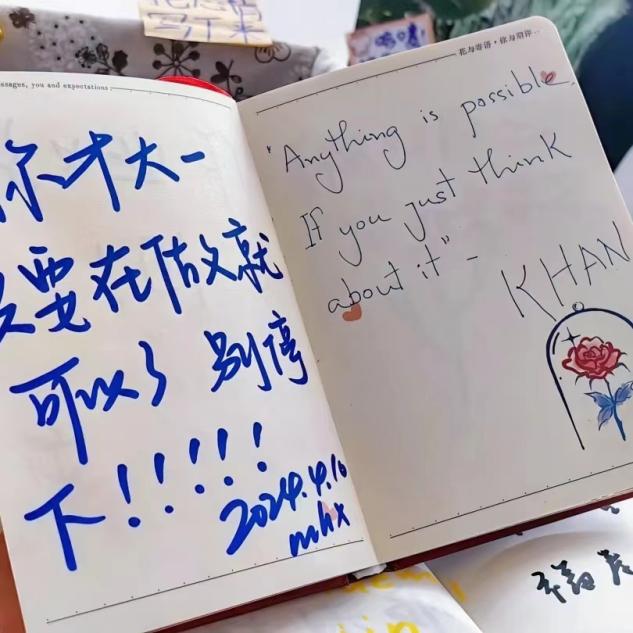 ssages, you and expectations
你才大一
只要在做就
可以了 别停
下!!!!!
2024.4.10
mhx
花与寄语·你与期许
"Anything is possible
If you just think
about it" -
KHAN
写下来